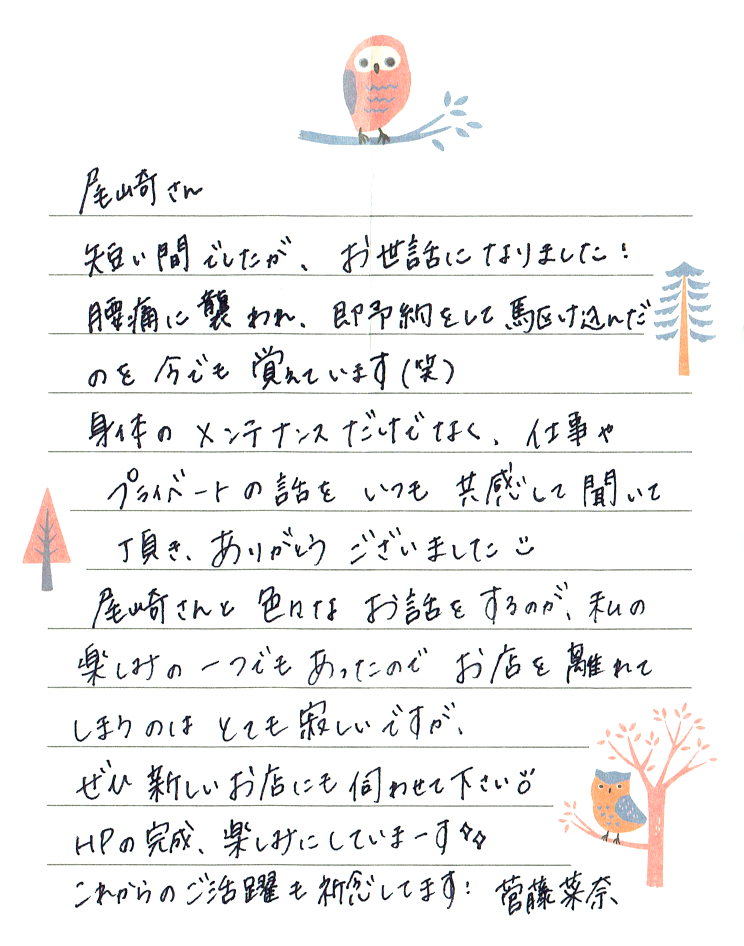 尾崎さん
短い間でしたが、お世話になりました！
腰痛に襲われ、即予約をして駆け込んだ
のを今でも覚えています(笑)
身体のメンテナンスだけでなく、仕事や
プライベートの話をいつも共感して聞いて
頂き、ありがとうございました
尾崎さんと色々なお話をするのが、私の
楽しみの一つでもあったのでお店を離れて
しまうのはとても寂しいですが、
ぜひ新しいお店にも伺わせて下さい
HPの完成、楽しみにしていまーす
これからのご活躍も祈念してます！ 菅藤菜奈